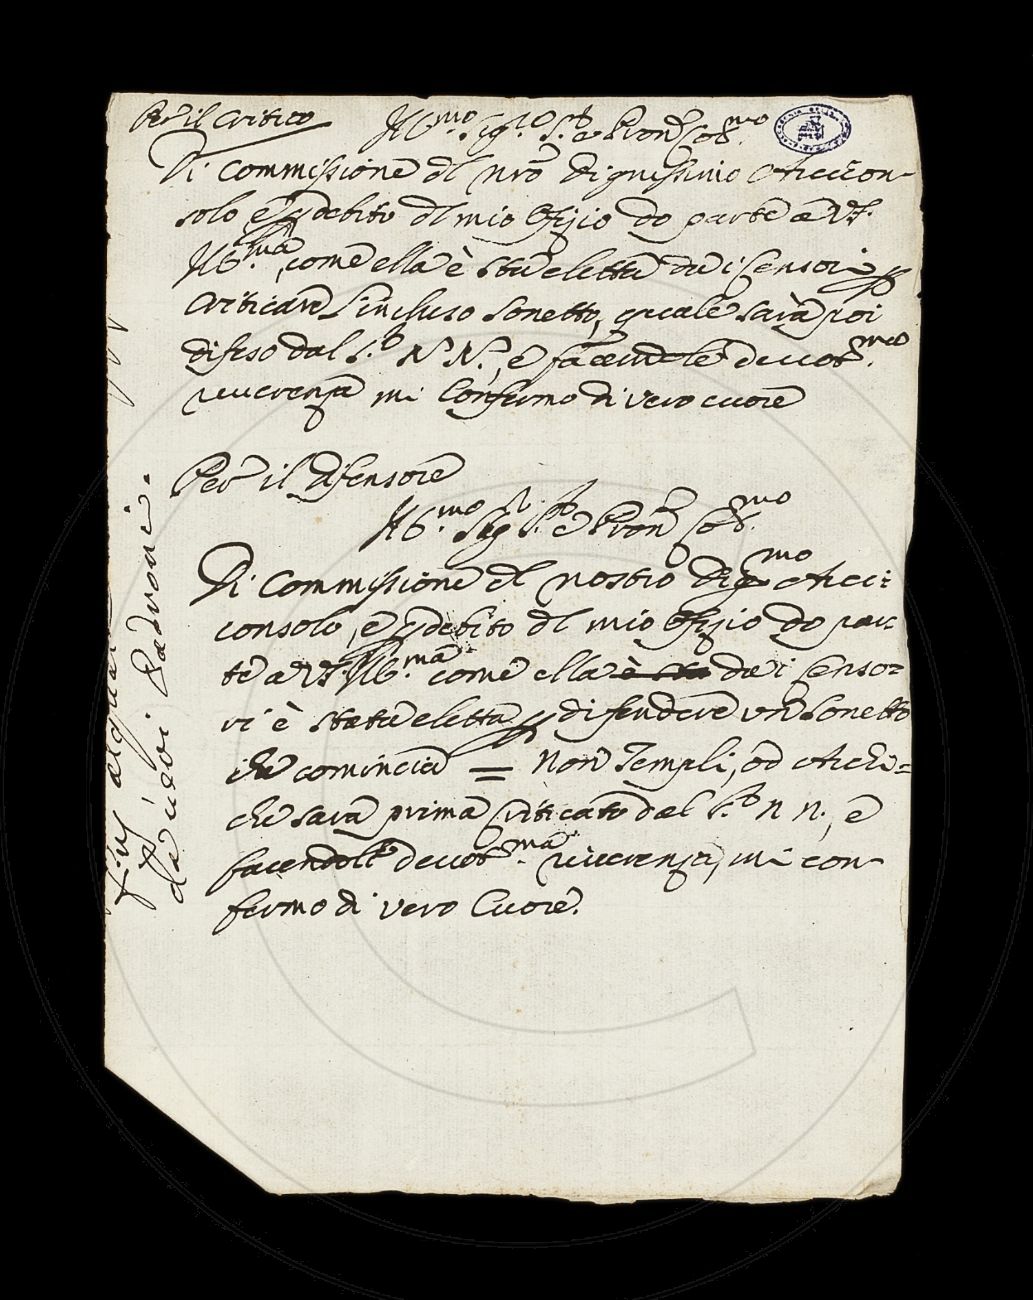 Per il Critico
Ill.mo Sig.re S.r e Pron Col.mo
Di Commissione dl nro dignissimo Arcicon-
solo e p debito dl mio Ofizio do parte a VS.
Ill.ma, come ella è sta eletta dai Censori p
Criticare l'incluso Sonetto, quale sarà poi
difeso dal S.r N. N., e facendole devot.ma
reverenza mi Confermo di vero cuore
Per il Difensore
Ill.mo Sig S.r e Pron Col.mo
Di Commissione dl nostro dig.mo Arci-
consolo, e p debito dl mio Ofizio do par-
te a VS. Ill.ma come ella è sta dai Censo-
ri è stata eletta p difendere un Sonetto
che comincia = Non Templi, od Archi =
che sarà prima Criticato dal S.r N N., e
facendole devot.ma reverenza, mi con-
fermo di vero Cuore.
da suoi Padroni.